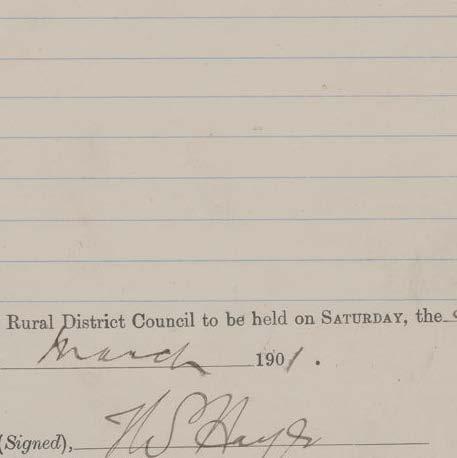 Rural District Council to be held on SATURDAY, the
March 1901.
(Signed),